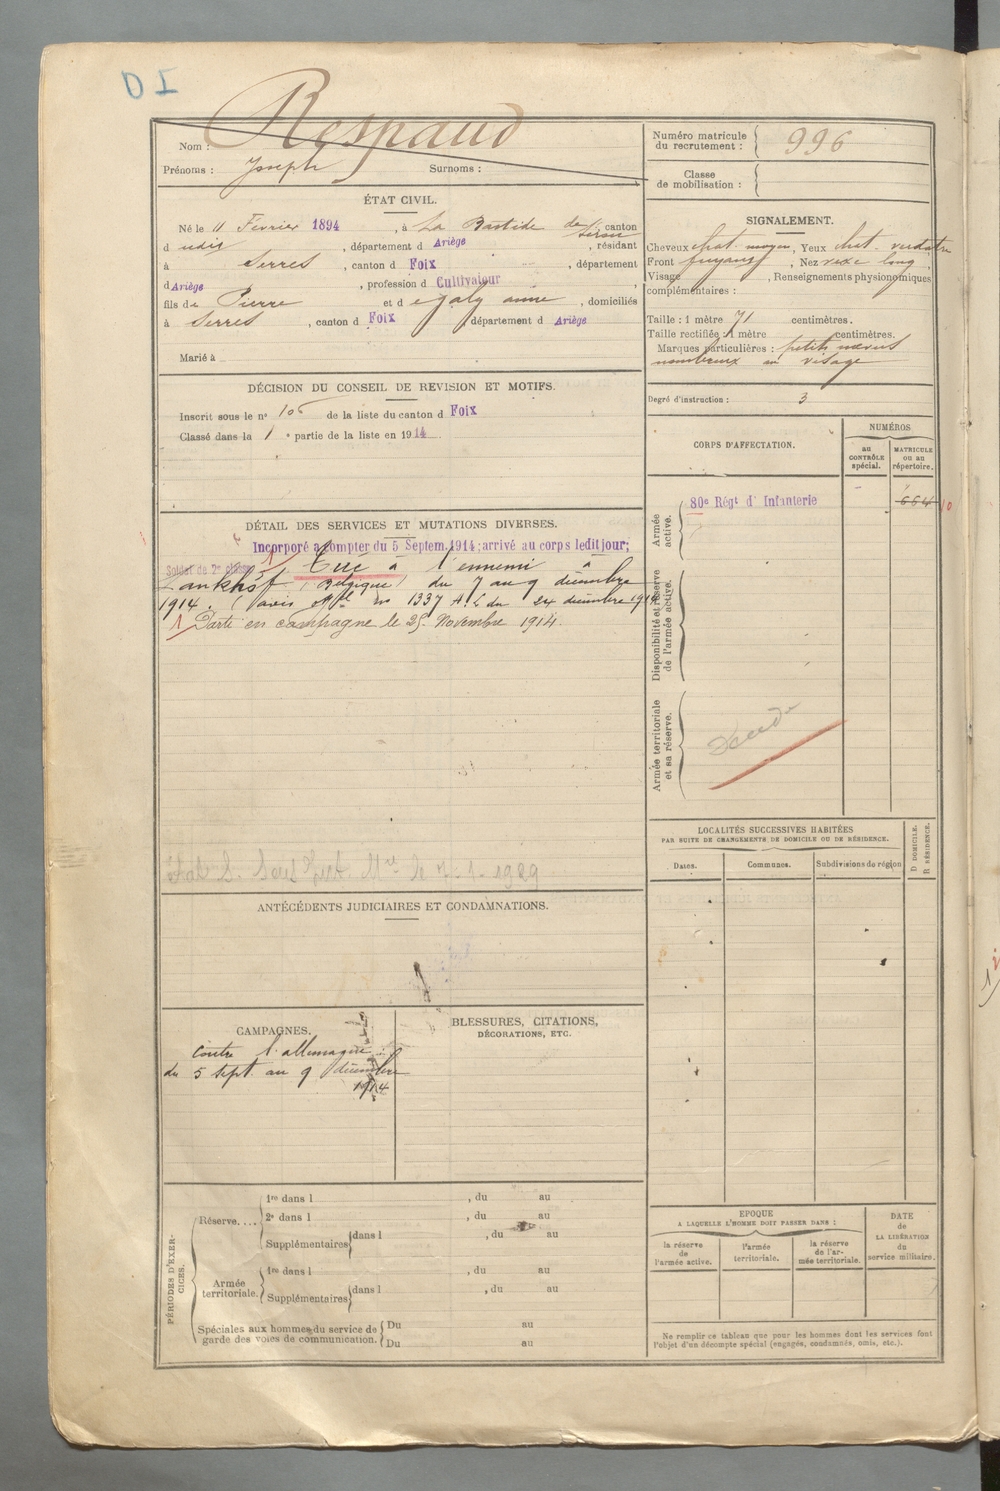 DI
Nom : Respaud
Prénoms : Joseph Surnoms :
Numéro matricule du recrutement : 996
Classe de mobilisation :
ÉTAT CIVIL.
Né le 11 Février 1894, à La Bastide de Sérou, canton
d udit, département d Ariège, résidant
à Serres, canton d Foix, département
d Ariège, profession d Cultivateur,
fils de Pierre et d egaly anne, domiciliés
à Serres, canton d Foix, département d Ariège
Marié à
SIGNALEMENT.
Cheveux chat. moyen, Yeux chat. verdatre
Front fuyant, Nez vexe long,
Visage , Renseignements physionomiques
complémentaires :
Taille : 1 mètre 71 centimètres.
Taille rectifiée : 1 mètre centimètres.
Marques particulières : petits naevus
nombreux au visage
Degré d'instruction : 3
DÉCISION DU CONSEIL DE REVISION ET MOTIFS.
Inscrit sous le n° de la liste du canton d Foix
Classé dans la 1e partie de la liste en 1914
DÉTAIL DES SERVICES ET MUTATIONS DIVERSES.
Incorporé à compter du 5 Septem. 1914; arrivé au corps ledit jour;
Soldat de 2e classe. Tué à l'ennemi à
Zankhof (Belgique) du 7 au 9 décembre
1914. (avis Mel n° 1337 A.L du 24 décembre 1914
1 Parti en campagne le 25 Novembre 1914.
Mle le 7-1-1929
CORPS D'AFFECTATION.
NUMÉROS
au CONTRÔLE spécial.
MATRICULE ou au répertoire.
Armée active.
80e Régt d' Infanterie
664
10
Disponibilité et réserve de l'armée active.
Armée territoriale et sa réserve.
Décédé
LOCALITÉS SUCCESSIVES HABITÉES
PAR SUITE DE CHANGEMENTS DE DOMICILE OU DE RÉSIDENCE.
Dates. Communes. Subdivisions de région
D DOMICILE.
R RÉSIDENCE.
ANTÉCÉDENTS JUDICIAIRES ET CONDAMNATIONS.
CAMPAGNES.
Contre l'allemagne
du 5 sept. au 9 décembre
1914
BLESSURES, CITATIONS,
DÉCORATIONS, ETC.
PÉRIODES D'EXERCICES.
Réserve....
1re dans l , du au
2e dans l , du au
Supplémentaires dans l , du au
Armée territoriale.
1re dans l , du au
Supplémentaires dans l , du au
Spéciales aux hommes du service de
garde des voies de communication.
Du au
Du au
EPOQUE
A LAQUELLE L'HOMME DOIT PASSER DANS :
la réserve de l'armée active.
l'armée territoriale.
la réserve de l'armée territoriale.
DATE de LA LIBÉRATION du service militaire.
Ne remplir ce tableau que pour les hommes dont les services font
l'objet d'un décompte spécial (engagés, condamnés, omis, etc.).